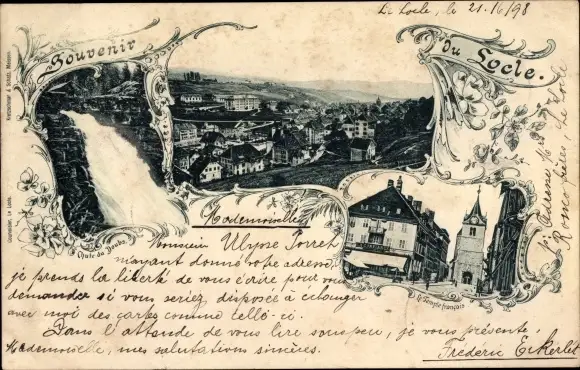 Le Locle, le 21.16/98
Souvenir
Du Locle.
Chute du Doubs.
Le Temple français
Mademoiselle,
Monsieur Ulysse Perret
m'ayant donné votre adresse,
je prends la liberté de vous écrire pour vous
demander si vous seriez disposée à échanger
avec moi des cartes comme celle-ci.
Dans l'attende de vous lire sous peu, je vous présente,
Mademoiselle, mes salutations sincères.
Frédéric